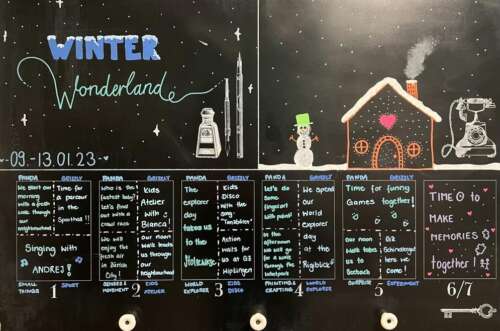 WINTER
Wonderland
-09.-13.01.23-
PANDA GRIZZLY
We start our
morning
with a fresh
walk though
our
neighbourhood
Time for
a parcour
in the
Sporthall!!
Singing with
ANDREJ!
SMALL THINGS 1 SPORT
PANDA GRIZZLY
Who is the
fastest baby?
Let's find
out with a
crawl race
Kids
Atelier
with
Bianca!
We will
enjoy the
fresh air
in Zürich
City!
Our noon
walk leads
us through
our
neighbourhood
SENSES & MOVEMENT 2 KIDS ATELIER
PANDA GRIZZLY
The
explorer
day
takes us
to the
Kids
Disco
with the
song
Action
waits for
us at GZ
Hirzlingen
WORLD EXPLORER 3 KIDS DISCO
PANDA GRIZZLY
Let's do
some
fingerart
with paint!
In the
afternoon
we will go
for a walk
through the
We spend
our
World
explorer
day
at the
Rigiblick
PAINTING & CRAFTING 4 WORLD EXPLORER
PANDA GRIZZLY
Time for funny
Games together!
Our noon
walk takes
us to
Seebach
GZ
here we
come!
SURPRISE 5 EXPERIMENT
TIME TO
MAKE
MEMORIES
together!
6/7